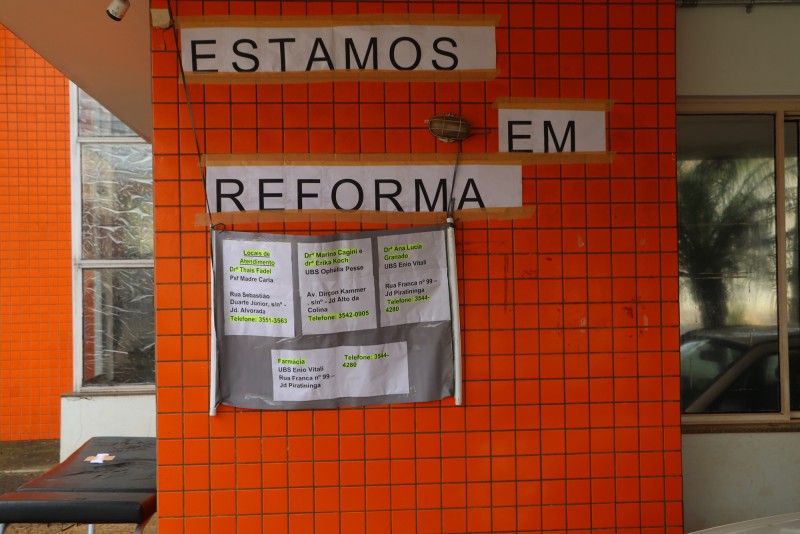 ESTAMOS
EM
REFORMA
Locais de
Atendimento
Drª Thais Fadel
Psf Madre Carla
Rua Sebastião
Duarte Júnior, s/nº -
Jd Alvorada
Telefone: 3551-3563
Drª Marina Cagini e
drª Erika Koch
UBS Ophélia Pesse
Av. Dirçon Kammer
, s/nº - Jd Alto da
Colina
Telefone: 3542-0905
Drª Ana Lucia
Granado
UBS Enio Vitali
Rua Franca nº 99 –
Jd Piratininga
Telefone: 3544-
4280
Farmácia
UBS Enio Vitali
Rua Franca nº 99 –
Jd Piratininga
Telefone: 3544-
4280